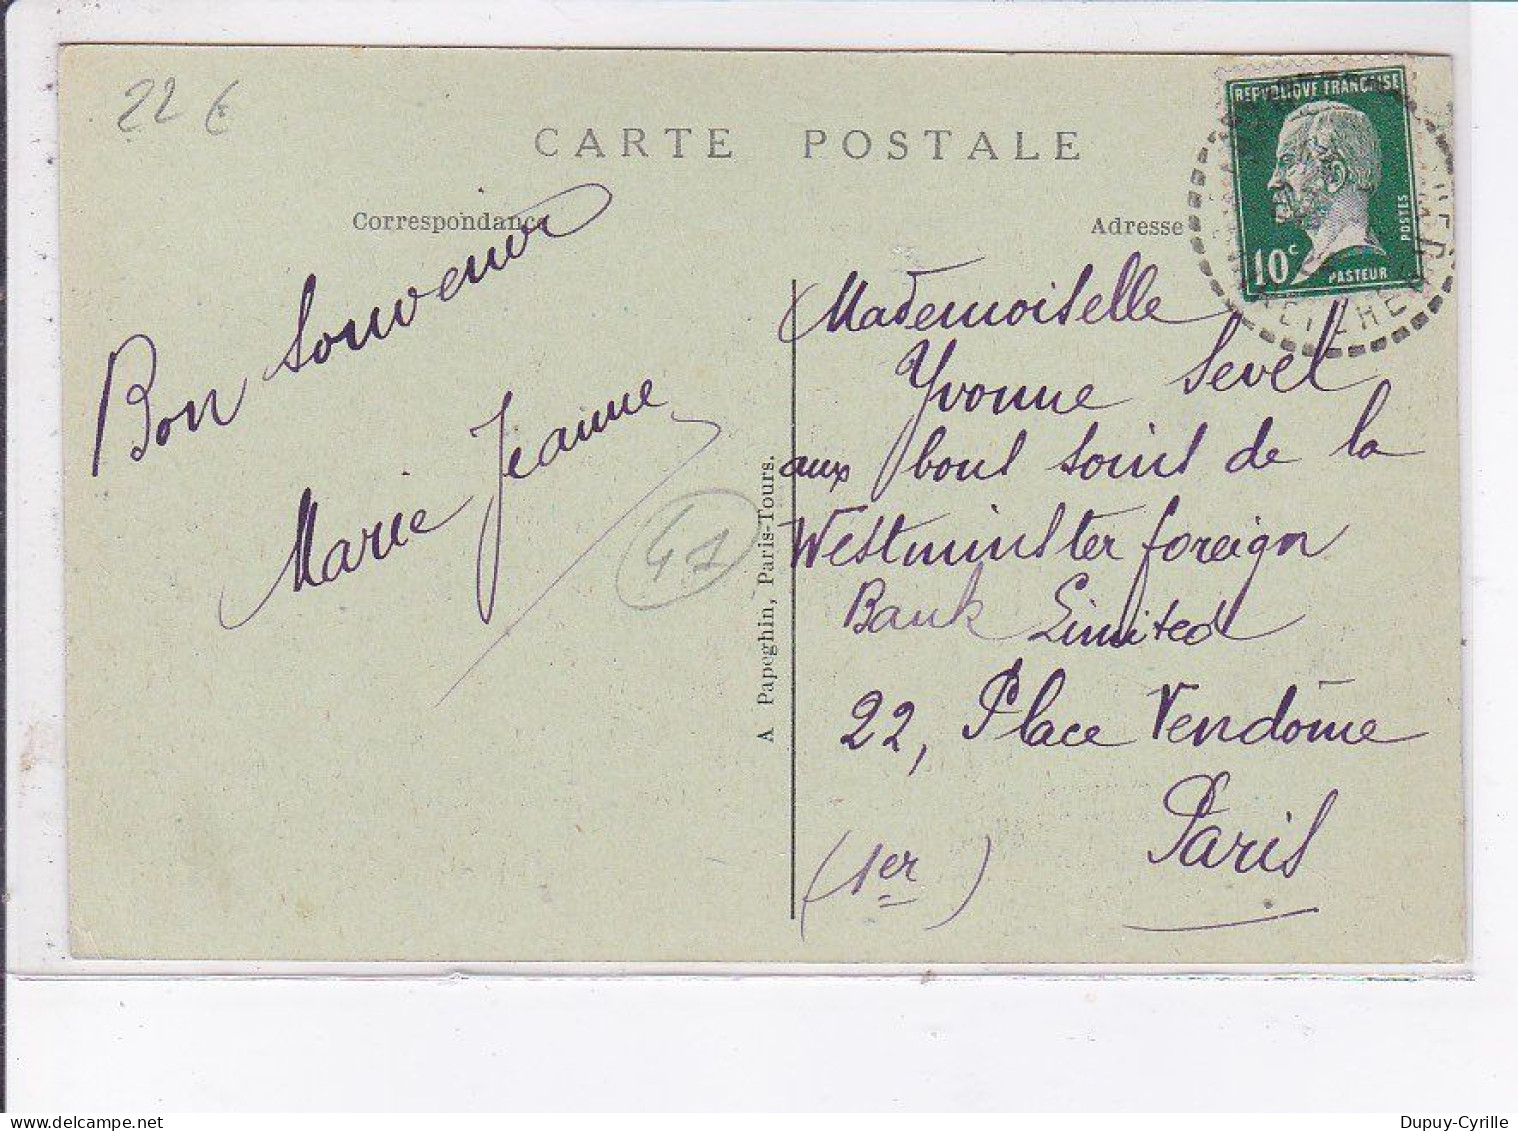 22 €
CARTE POSTALE
Correspondance
Adresse
REPUBLIQUE FRANÇAISE
POSTES
10c
PASTEUR
Bon Souvenir
Marie Jeanne
41
A Papeghin, Paris-Tours.
Mademoiselle
Yvonne Sevet
aux bons soins de la
Westminster foreign
Bank Limited
22, Place Vendôme
Paris
(1er)
delcampe.net
Dupuy-Cyrille